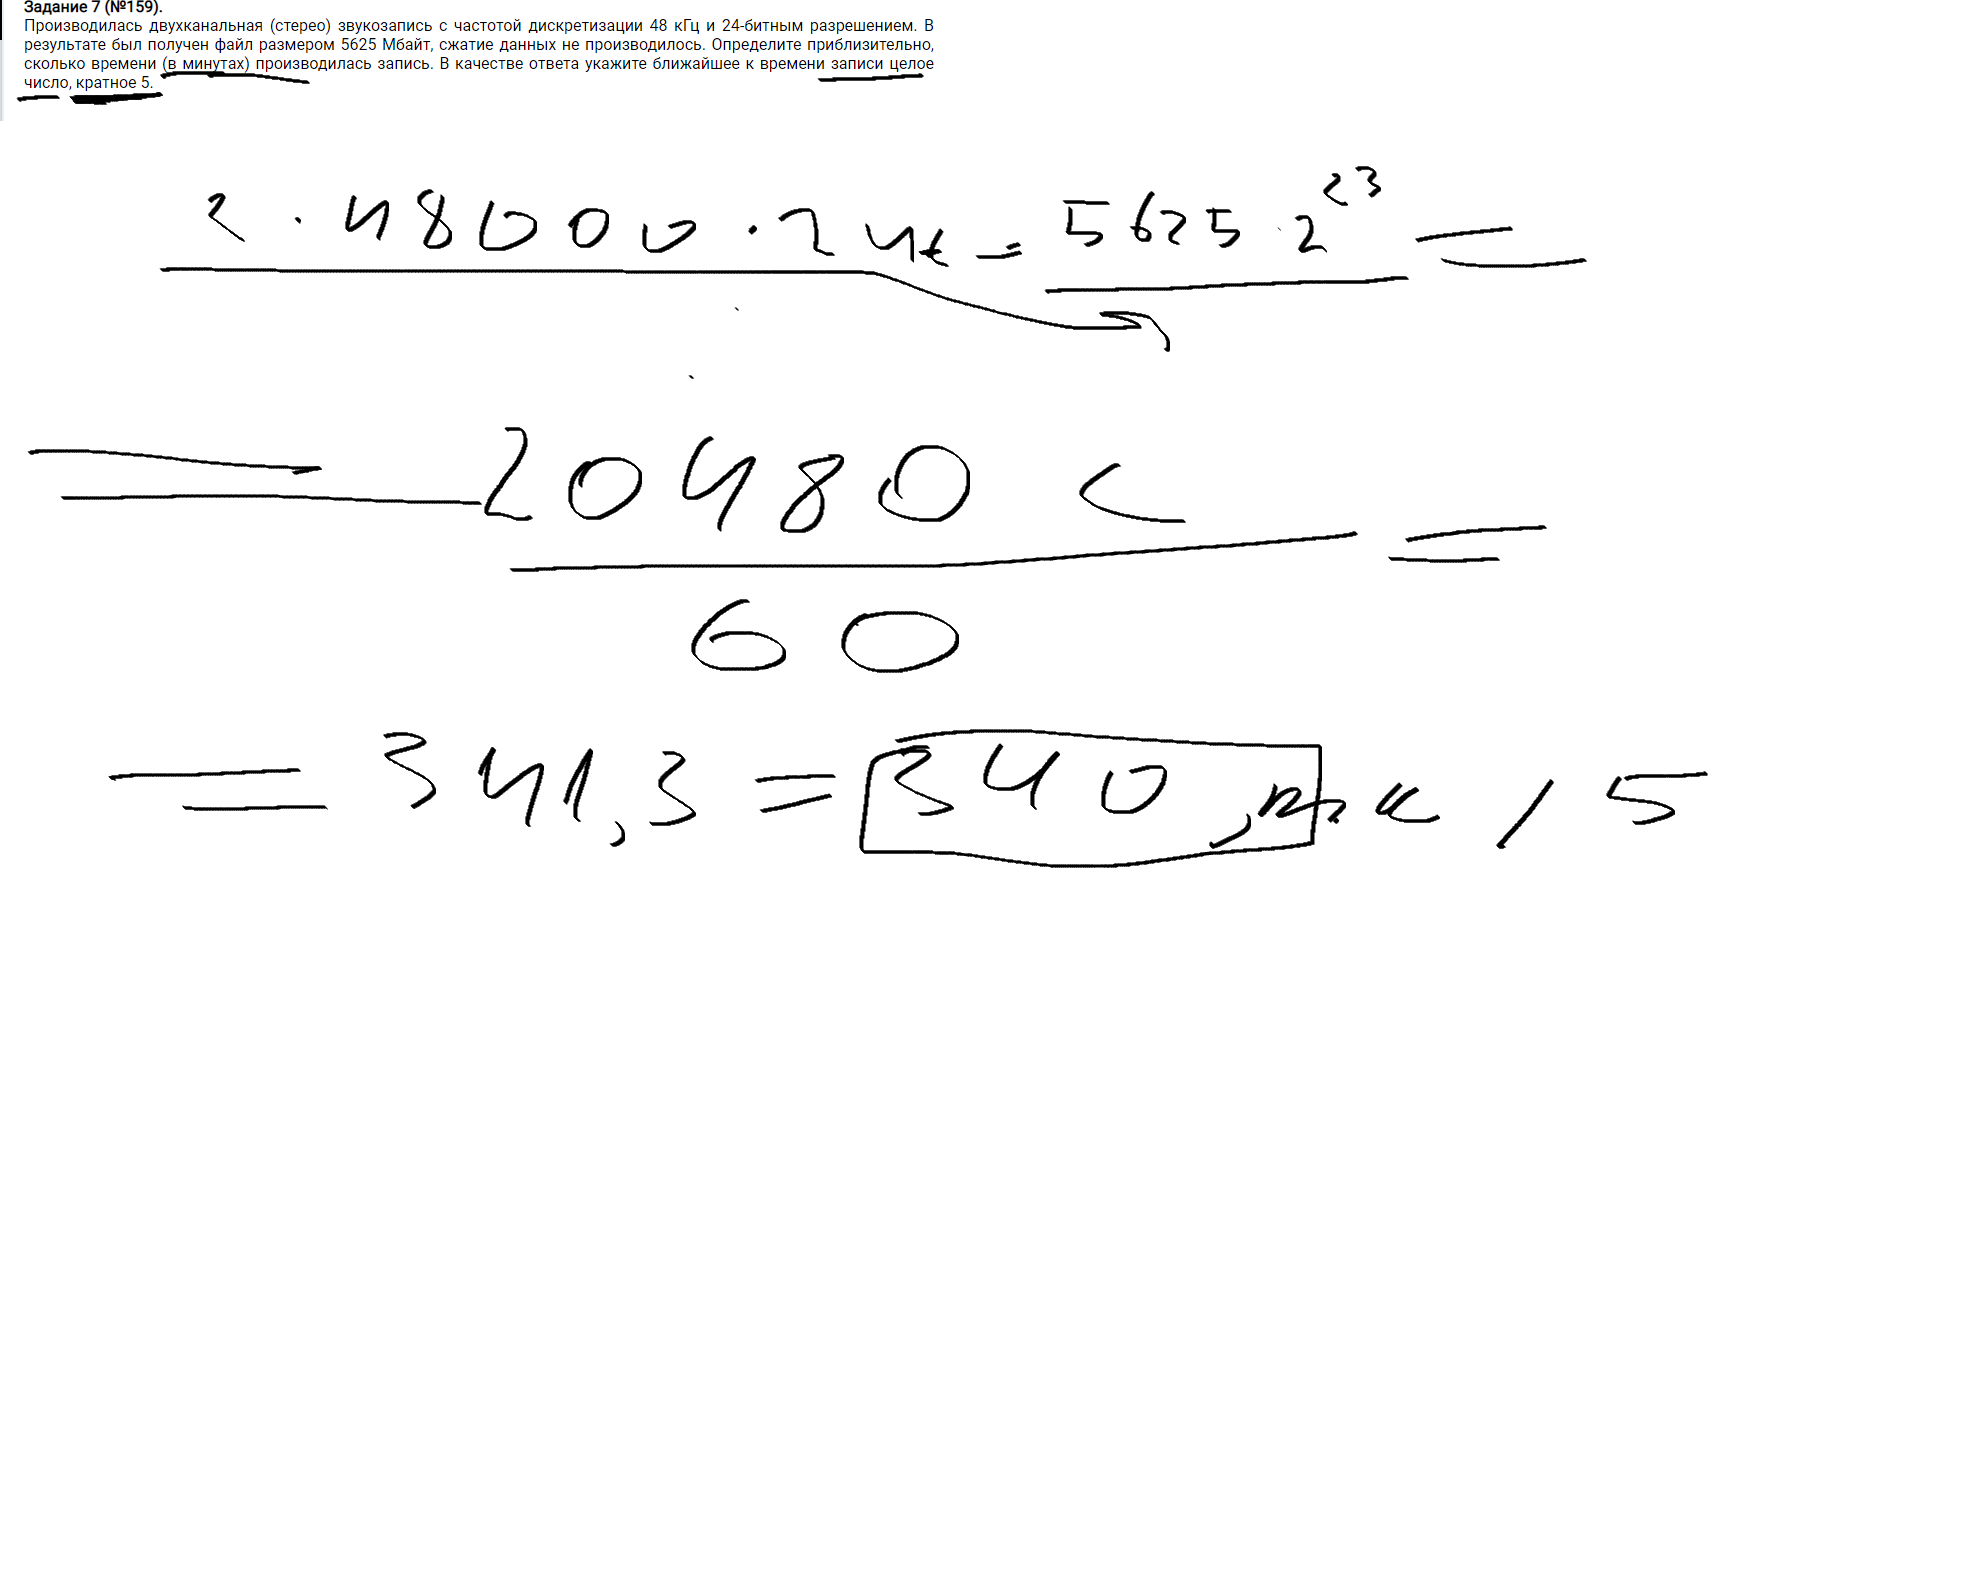 Задание 7 (№159).
Производилась двухканальная (стерео) звукозапись с частотой дискретизации 48 кГц и 24-битным разрешением. В
результате был получен файл размером 5625 Мбайт, сжатие данных не производилось. Определите приблизительно,
сколько времени (в минутах) производилась запись. В качестве ответа укажите ближайшее к времени записи целое
число, кратное 5.
2 · 48000 · 24t = 5625 · 2^23 =
= 20480 с =
60
= 341,3 = 340, т.к , 5